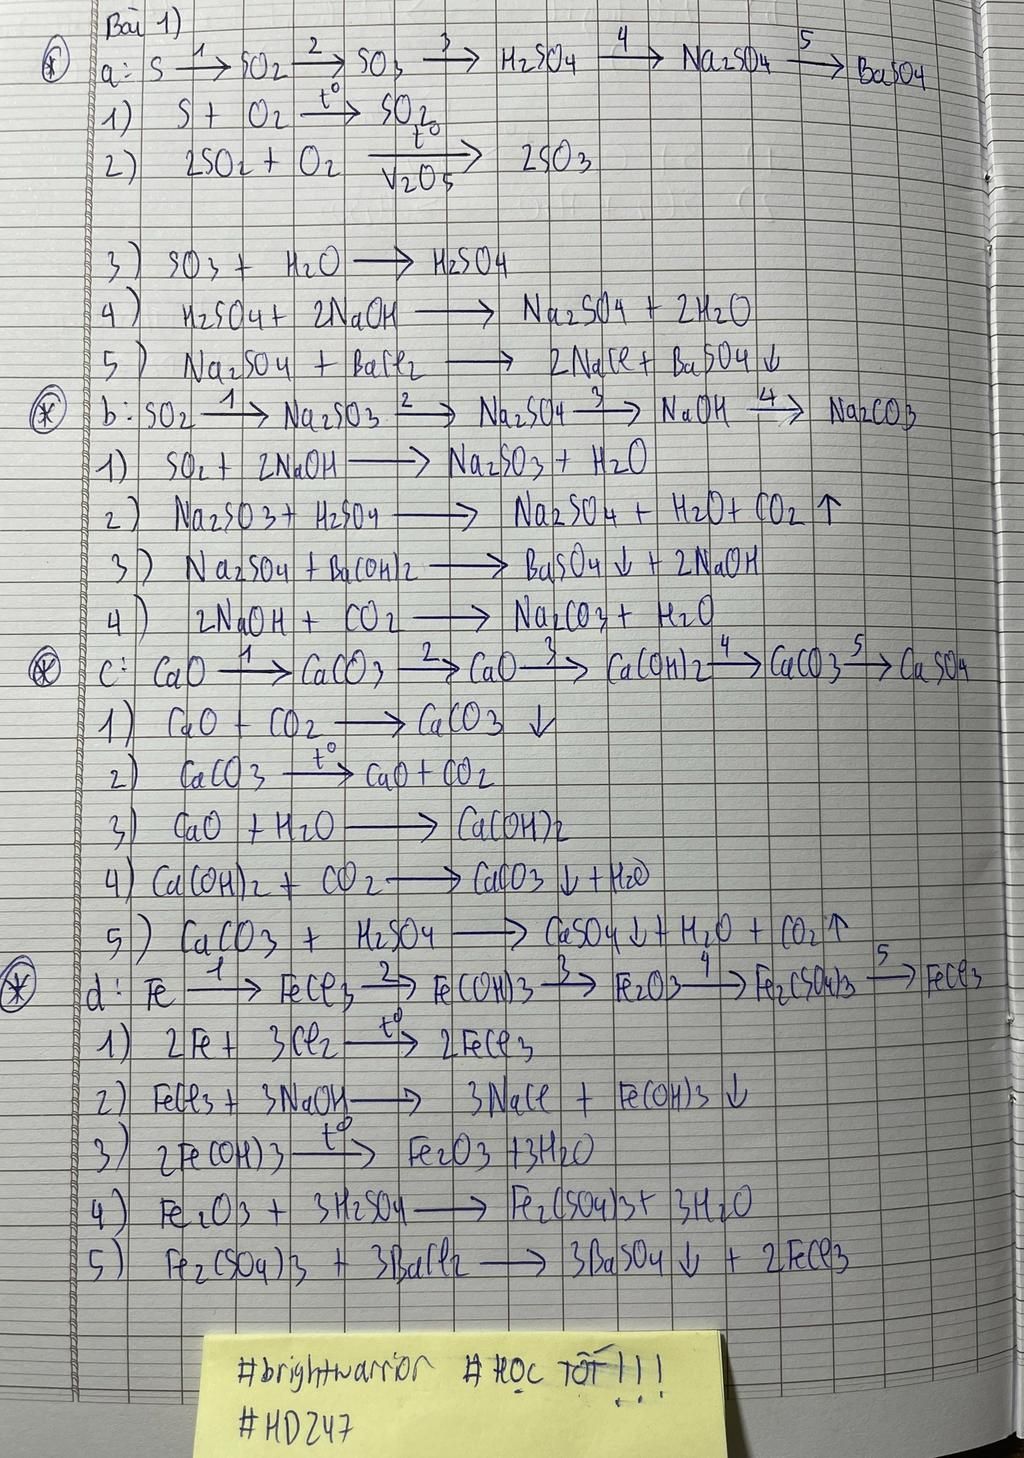 Bài 1)
a: S 1→ SO2 2→ SO3 3→ H2SO4 4→ Na2SO4 5→ BaSO4
1) S + O2 t°→ SO2
2) 2SO2 + O2 t°→ V2O5 2SO3
3) SO3 + H2O → H2SO4
4) H2SO4 + 2NaOH → Na2SO4 + 2H2O
5) Na2SO4 + BaCl2 → 2NaCl + BaSO4 ↓
b: SO2 1→ Na2SO3 2→ Na2SO4 3→ NaOH 4→ Na2CO3
1) SO2 + 2NaOH → Na2SO3 + H2O
2) Na2SO3 + H2SO4 → Na2SO4 + H2O + CO2 ↑
3) Na2SO4 + Ba(OH)2 → BaSO4 ↓ + 2NaOH
4) 2NaOH + CO2 → Na2CO3 + H2O
c: CaO 1→ CaCO3 2→ CaO 3→ Ca(OH)2 4→ CaCO3 5→ CaSO4
1) CaO + CO2 → CaCO3 ↓
2) CaCO3 t°→ CaO + CO2
3) CaO + H2O → Ca(OH)2
4) Ca(OH)2 + CO2 → CaCO3 ↓ + H2O
5) CaCO3 + H2SO4 → CaSO4 ↓ + H2O + CO2 ↑
d: Fe 1→ FeCl3 2→ Fe(OH)3 3→ Fe2O3 4→ Fe2(SO4)3 5→ FeCl3
1) 2Fe + 3Cl2 t°→ 2FeCl3
2) FeCl3 + 3NaOH → 3NaCl + Fe(OH)3 ↓
3) 2Fe(OH)3 t°→ Fe2O3 + 3H2O
4) Fe2O3 + 3H2SO4 → Fe2(SO4)3 + 3H2O
5) Fe2(SO4)3 + 3BaCl2 → 3BaSO4 ↓ + 2FeCl3
#brightwarrior #HỌC TỐT!!!
#HD247